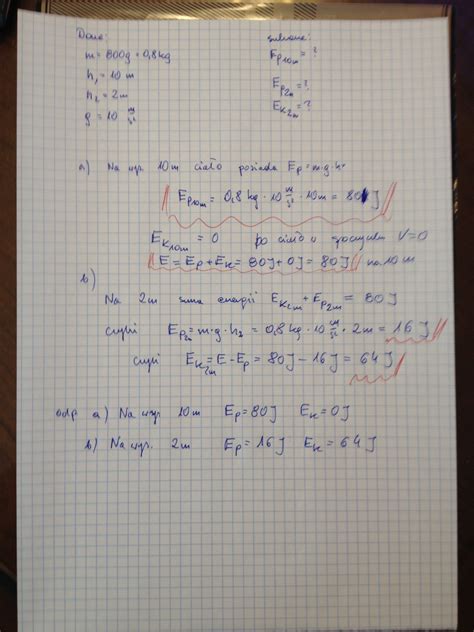 Dane:
szukane:
m = 800g = 0,8kg
Ep10m = ?
h₁ = 10 m
h₂ = 2m
Ep2m = ?
Ek2m = ?
g = 10 m/s²
a) Na wys. 10m ciało posiada Ep = m·g·h
Ep10m = 0,8 kg · 10 m/s² · 10m = 80J
Ek10m = 0 bo ciało w spoczynku V=0
E = Ep + Ek = 80J + 0J = 80J na 10m
b)
Na 2m suma energii Ek2m + Ep2m = 80J
czyli Ep2m = m·g·h₂ = 0,8 kg · 10 m/s² · 2m = 16J
czyli Ek2m = E - Ep = 80J - 16J = 64J
odp a) Na wys. 10m Ep = 80J Ek = 0J
b) Na wys. 2m Ep = 16J Ek = 64J